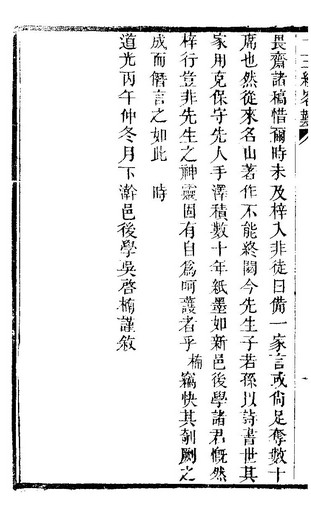 畏齋諸稿惜爾時未及梓入非徒曰備一家言或尙足奪數十
席也然從來名山著作不能終閟今先生子若孫以詩書世其
家用克保守先人手澤積數十年紙墨如新邑後學諸君慨然
梓行豈非先生之神靈固有自爲呵護者乎楠竊快其剞劂之
成而僭言之如此　時
道光丙午仲冬月下澣邑後學吳啓楠謹敘